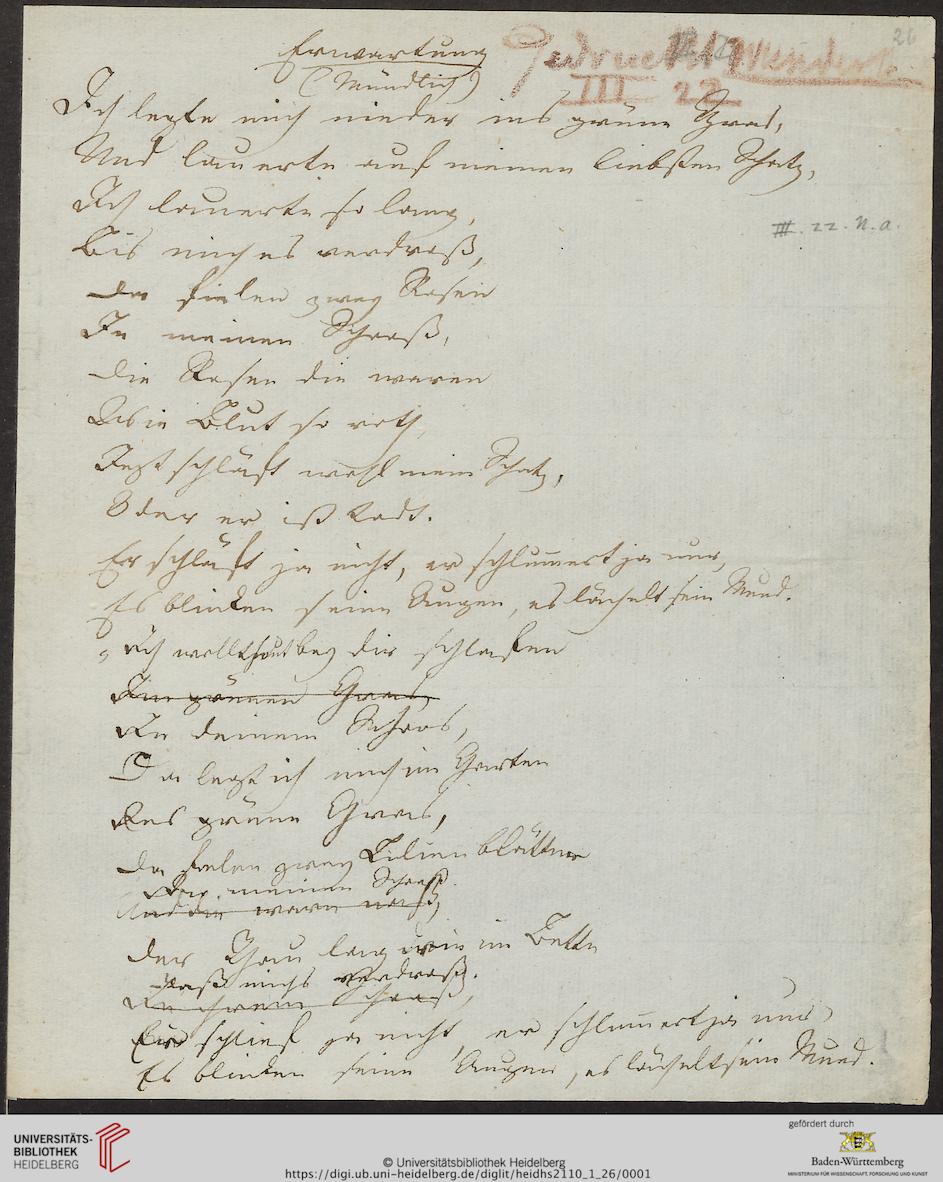 26
Erwartung
(Mündlich)
Gedruckt Wunderh.
III 22
Ich legte mich nieder ins grüne Gras,
Und lauerte auf meinen liebsten Schatz,
Ich lauerte so lang,
III. 22. N. a.
Bis mich es verdroß,
Da fielen zwey Rosen
In meinen Schooß,
Die Rosen die waren
Wie Blut so roth,
Jezt schläft wohl mein Schatz,
Oder er ist todt.
Er schläft ja nicht, er schlummert ja nur,
Es blinken seine Augen, es lächelt sein Mund.
Ich wollt heut bey dir schlafen
Im grünen Gras,
In deinem Schoos,
Da legt ich mich im Garten
Ins grüne Gras,
Da fielen zwey Lilienblätter
In meinen Schooß
Und die waren naß,
Der Thau lag wie im Bette
Daß michs verdroß.
In ihrem Schooß,
Er schlief ja nicht, er schlummert ja nur
Es blinken seine Augen, es lächelt sein Mund.
UNIVERSITÄTS-
BIBLIOTHEK
HEIDELBERG
© Universitätsbibliothek Heidelberg
https://digi.ub.uni-heidelberg.de/diglit/heidhs2110_1_26/0001
gefördert durch
Baden-Württemberg
MINISTERIUM FÜR WISSENSCHAFT, FORSCHUNG UND KUNST